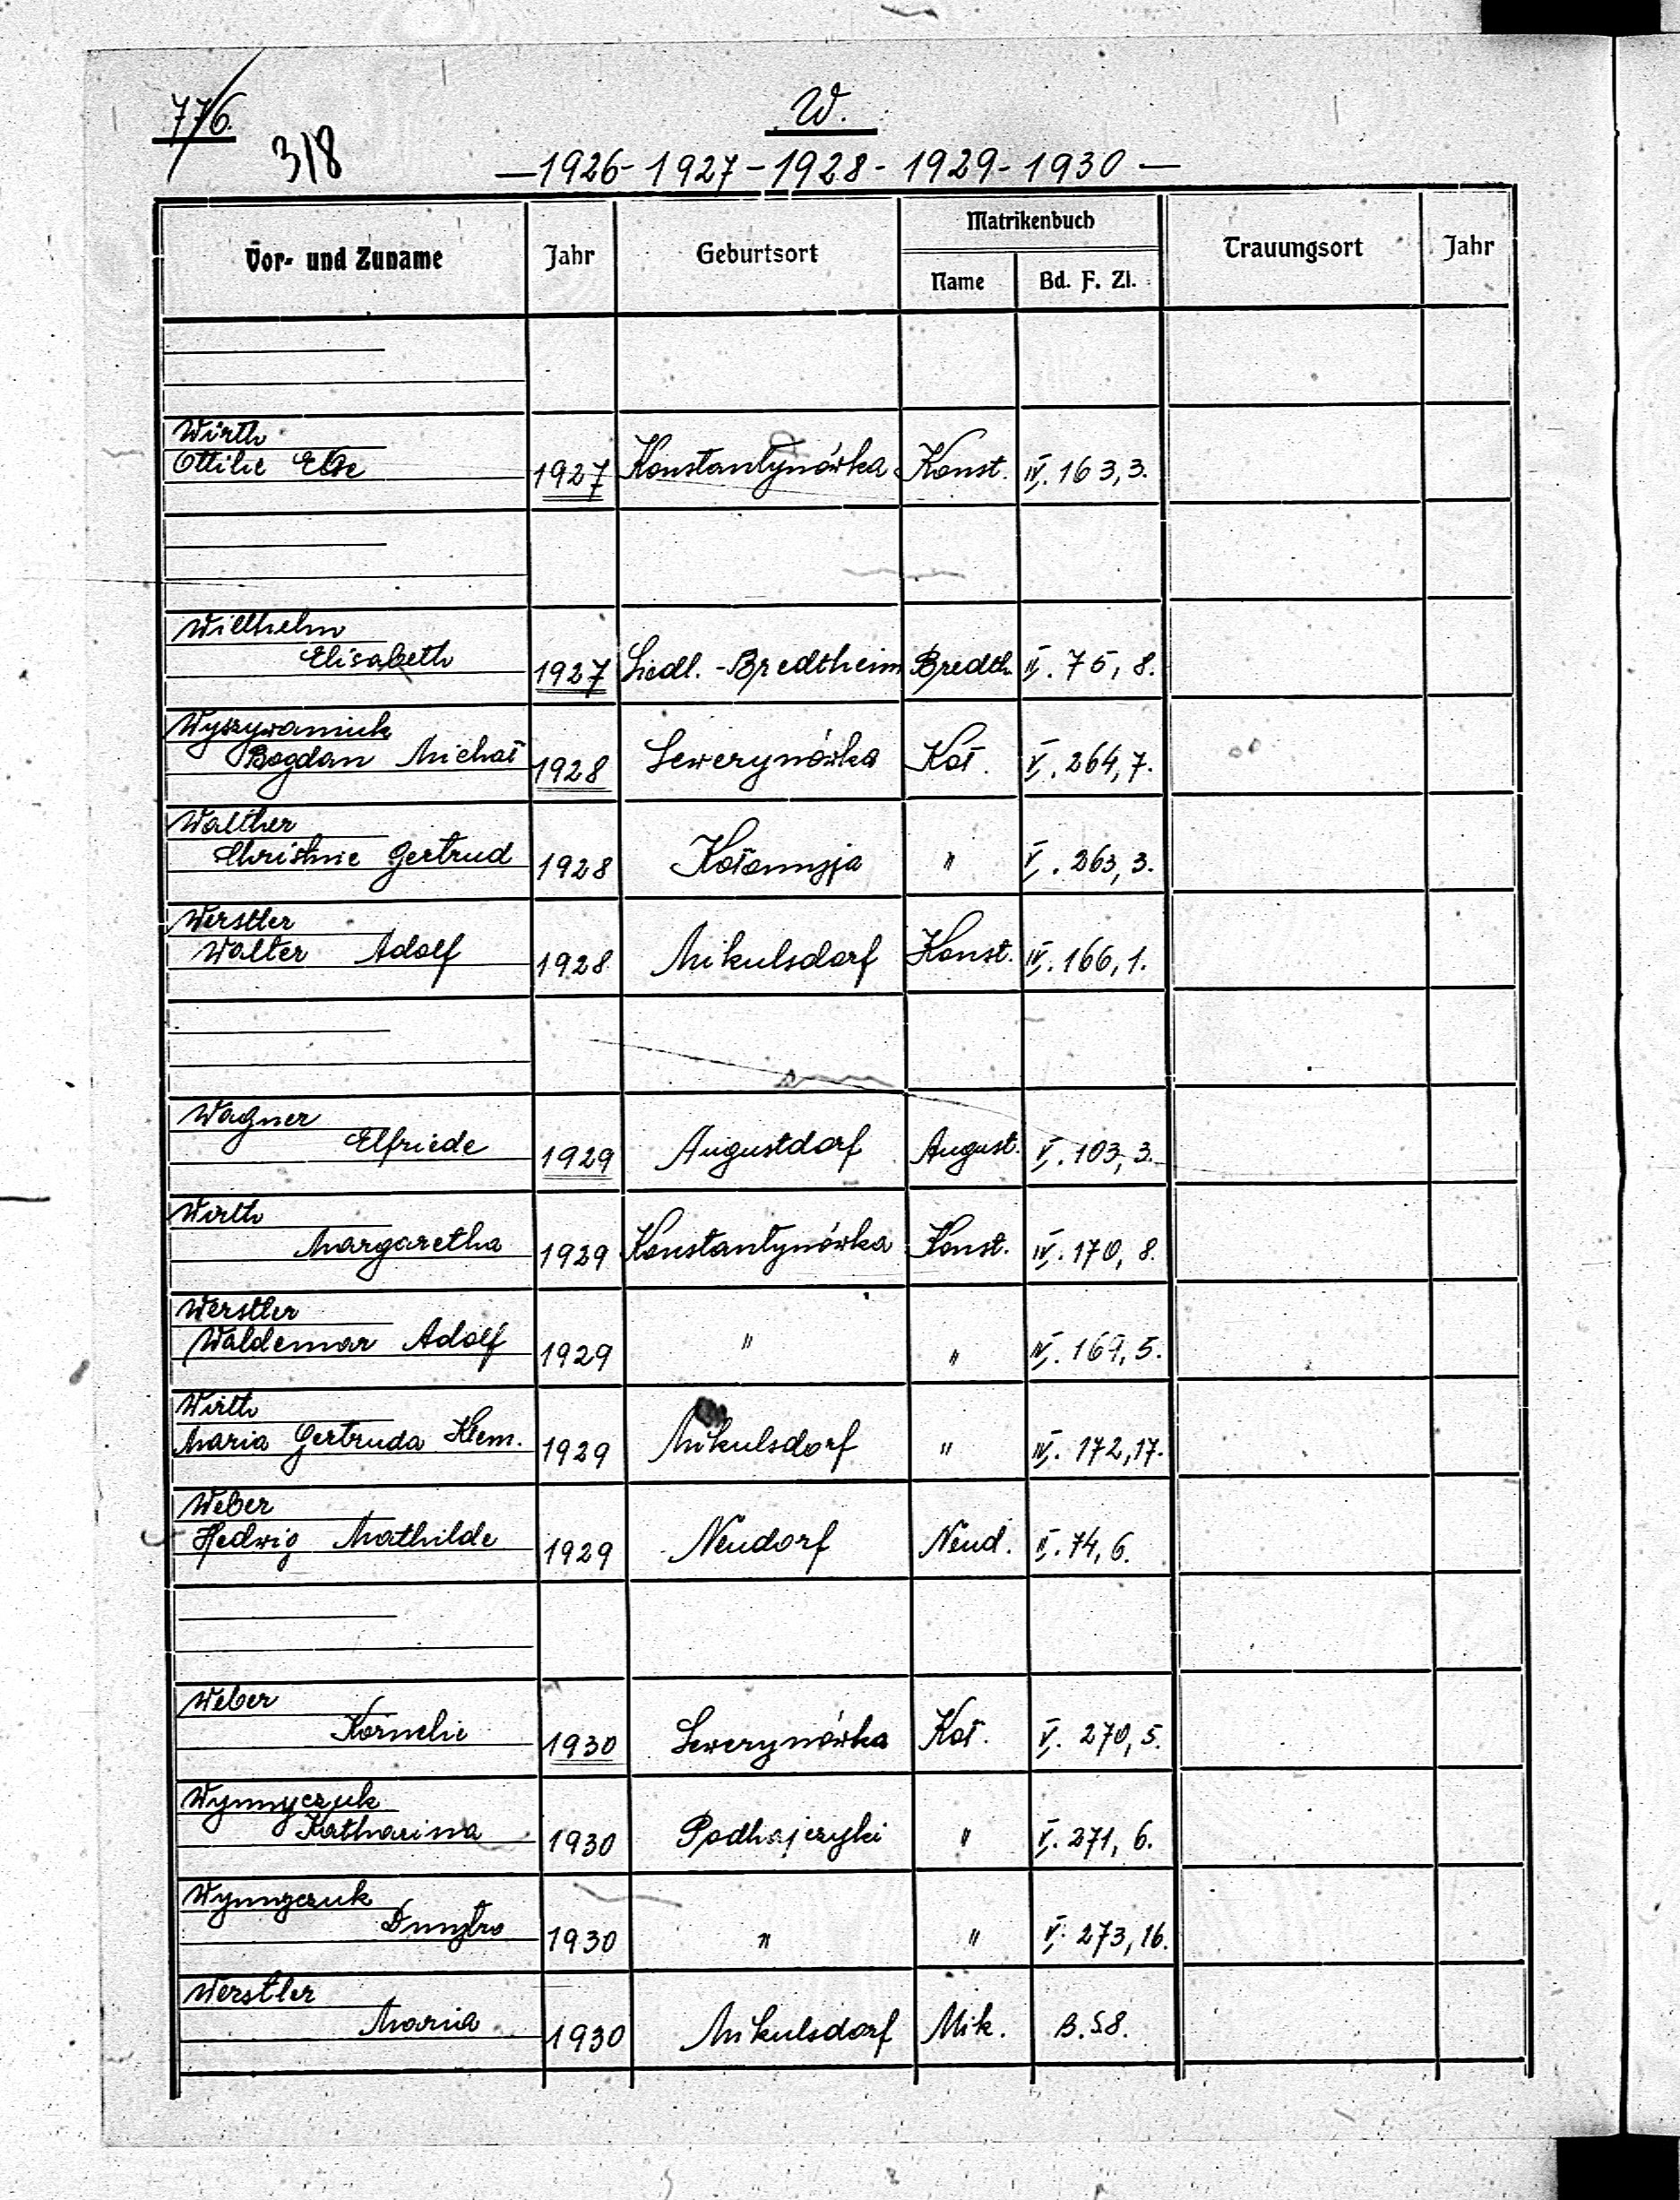 776.
318
W.
—1926-1927-1928-1929-1930—
Vor- und Zuname Jahr Geburtsort Matrikenbuch Trauungsort Jahr
Name Bd. F. Zl.
Wirth
Ottilie Else 1927 Konstantynówka Konst. IV. 163,3.
Willhelm
Elisabeth 1927 Siedl.-Bredtheim Bredth. II. 75, 8.
Wyszywaniuk
Bogdan Michał 1928 Sewerynówka Koł. V. 264,7.
Walther
Christine Gertrud 1928 Kołomyja " V. 263,3.
Werstler
Walter Adolf 1928 Mikulsdorf Konst. IV. 166,1.
Wagner
Elfriede 1929 Augustdorf August. V. 103,3.
Wirth
Margaretha 1929 Konstantynówka Konst. IV. 170, 8.
Werstler
Waldemar Adolf 1929 " " IV. 169,5.
Wirth
Maria Gertruda Klem. 1929 Mikulsdorf " IV. 172,17.
Weber
Hedwig Mathilde 1929 Neudorf Neud. II. 74, 6.
Weber
Kornelie 1930 Sewerynówka Koł. V. 270,5.
Wynnyczuk
Katharina 1930 Podhajczyki " V. 271, 6.
Wynnyczuk
Dmytro 1930 " " V. 273,16.
Werstler
Maria 1930 Mikulsdorf Mik. B.S8.